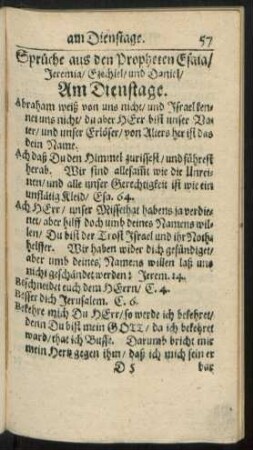 am Dienstage. 57
Sprüche aus den Propheten Esaia/
Jeremia/ Ezechiel/ und Daniel/
Am Dienstage.
Abraham weiß von uns nicht/ und Israel ken-
net uns nicht/ du aber HErr bist unser Va-
ter/ und unser Erlöser/ von Alters her ist das
dein Name.
Ach daß Du den Himmel zurissest/ und führest
herab. Wir sind allesamt wie die Unrei-
nen/ und alle unser Gerechtigkeit ist wie ein
unflätig Kleid/ Esa. 64.
Ach HErr/ unser Missethat habens ja verdie-
net/ aber hilff doch umb deines Namens wil-
len/ Du bist der Trost Israel und ihr Noth-
helffer. Wir haben wider dich gesündiget/
aber umb deines Namens willen laß uns
nicht geschändet werden: Jerem. 14.
Beschneidet euch dem HErrn/ C. 4.
Besser dich Jerusalem. C. 6.
Bekehre mich Du HErr/ so werde ich bekehret/
denn Du bist mein GOTT/ da ich bekehret
ward/ that ich Busse. Darumb bricht mir
mein Hertz gegen ihm/ daß ich mich sein er
D 5 bar